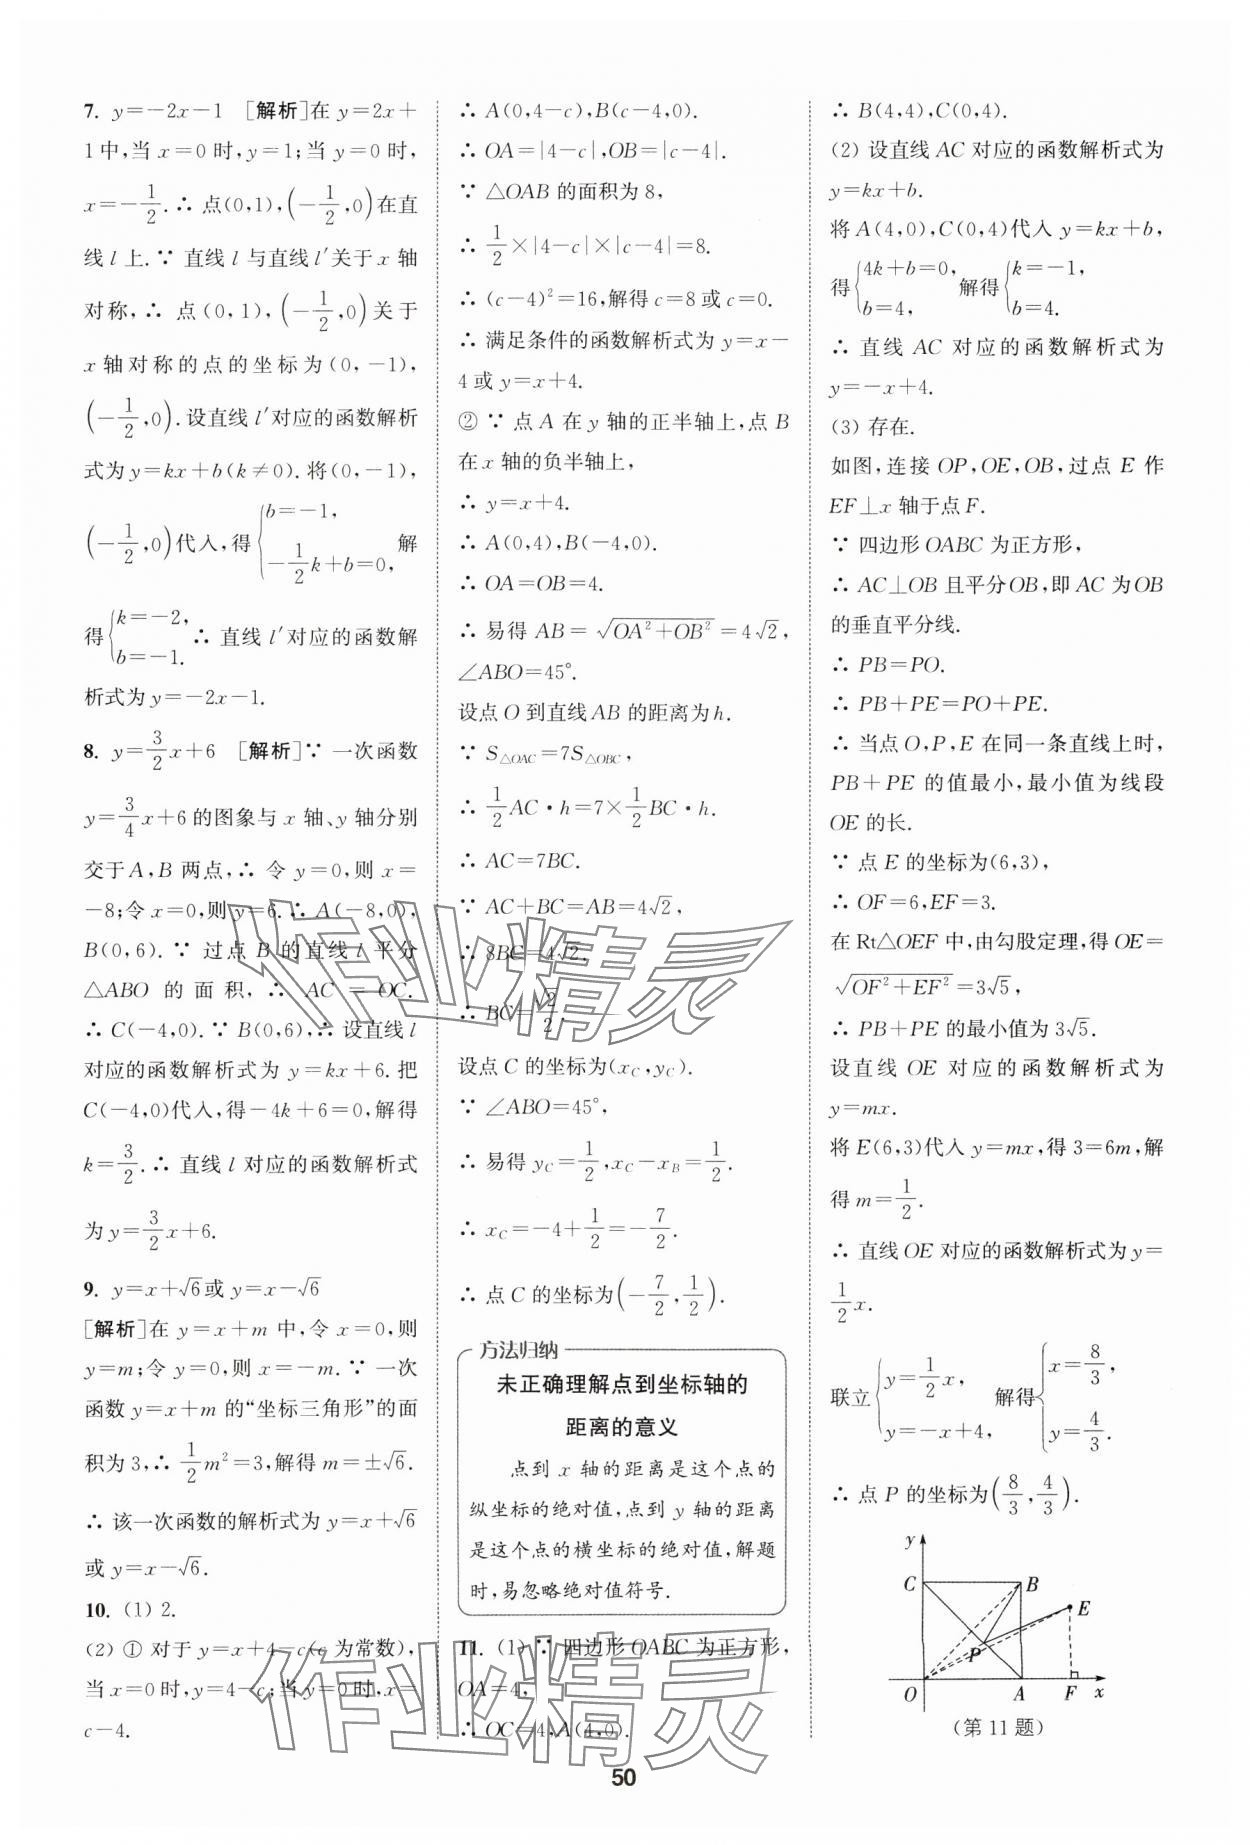 7. y=-2x-1 [解析]在 y=2x+
1中,当 x=0 时,y=1;当 y=0 时,
x=-1/2.∴ 点(0,1),(-1/2,0)在直
线 l 上.∵ 直线 l 与直线 l′关于 x 轴
对称,∴ 点(0,1),(-1/2,0)关于
x 轴对称的点的坐标为(0,-1),
(-1/2,0).设直线 l′对应的函数解析
式为 y=kx+b(k≠0).将(0,-1),
(-1/2,0)代入,得{b=-1, -1/2k+b=0, 解
得{k=-2, b=-1. ∴ 直线 l′对应的函数解
析式为 y=-2x-1.
8. y=3/2x+6 [解析]∵ 一次函数
y=3/4x+6 的图象与 x 轴、y 轴分别
交于A,B 两点,∴ 令 y=0,则 x=
-8;令 x=0,则 y=6.∴ A(-8,0),
B(0,6).∵ 过点 B 的直线 l 平分
△ABO 的面积,∴ AC=OC.
∴ C(-4,0).∵ B(0,6),∴ 设直线 l
对应的函数解析式为 y=kx+6.把
C(-4,0)代入,得-4k+6=0,解得
k=3/2.∴ 直线 l 对应的函数解析式
为 y=3/2x+6.
9. y=x+√6或 y=x-√6
[解析]在 y=x+m 中,令 x=0,则
y=m;令 y=0,则 x=-m.∵ 一次
函数 y=x+m 的“坐标三角形”的面
积为 3,∴ 1/2m²=3,解得 m=±√6.
∴ 该一次函数的解析式为 y=x+√6
或 y=x-√6.
10. (1) 2.
(2) ① 对于 y=x+4-c(c 为常数),
当 x=0 时,y=4-c;当 y=0 时,x=
c-4.
∴ A(0,4-c),B(c-4,0).
∴ OA=|4-c|,OB=|c-4|.
∵ △OAB 的面积为 8,
∴ 1/2×|4-c|×|c-4|=8.
∴ (c-4)²=16,解得 c=8 或 c=0.
∴ 满足条件的函数解析式为 y=x-
4 或 y=x+4.
② ∵ 点 A 在 y 轴的正半轴上,点 B
在 x 轴的负半轴上,
∴ y=x+4.
∴ A(0,4),B(-4,0).
∴ OA=OB=4.
∴ 易得 AB=√(OA²+OB²)=4√2,
∠ABO=45°.
设点 O 到直线 AB 的距离为 h.
∵ S△OAC=7S△OBC,
∴ 1/2AC·h=7×1/2BC·h.
∴ AC=7BC.
∵ AC+BC=AB=4√2,
∴ 8BC=4√2.
∴ BC=√2/2.
设点 C 的坐标为(xC,yC).
∵ ∠ABO=45°,
∴ 易得 yC=1/2,xC-xB=1/2.
∴ xC=-4+1/2=-7/2.
∴ 点 C 的坐标为(-7/2,1/2).
方法归纳
未正确理解点到坐标轴的
距离的意义
点到 x 轴的距离是这个点的
纵坐标的绝对值,点到 y 轴的距离
是这个点的横坐标的绝对值,解题
时,易忽略绝对值符号.
11. (1) ∵ 四边形 OABC 为正方形,
OA=4,
∴ OC=4,A(4,0).
∴ B(4,4),C(0,4).
(2) 设直线 AC 对应的函数解析式为
y=kx+b.
将 A(4,0),C(0,4)代入 y=kx+b,
得{4k+b=0, b=4, 解得{k=-1, b=4.
∴ 直线 AC 对应的函数解析式为
y=-x+4.
(3) 存在.
如图,连接 OP,OE,OB,过点 E 作
EF⊥x 轴于点 F.
∵ 四边形 OABC 为正方形,
∴ AC⊥OB 且平分 OB,即 AC 为 OB
的垂直平分线.
∴ PB=PO.
∴ PB+PE=PO+PE.
∴ 当点 O,P,E 在同一条直线上时,
PB+PE 的值最小,最小值为线段
OE 的长.
∵ 点 E 的坐标为(6,3),
∴ OF=6,EF=3.
在 Rt△OEF 中,由勾股定理,得 OE=
√(OF²+EF²)=3√5,
∴ PB+PE 的最小值为 3√5.
设直线 OE 对应的函数解析式为
y=mx.
将 E(6,3)代入 y=mx,得 3=6m,解
得 m=1/2.
∴ 直线 OE 对应的函数解析式为 y=
1/2x.
联立{y=1/2x, y=-x+4, 解得{x=8/3, y=4/3.
∴ 点 P 的坐标为(8/3,4/3).
y
C B
E
P
O A F x
(第 11 题)
50
作业精灵
作业精灵